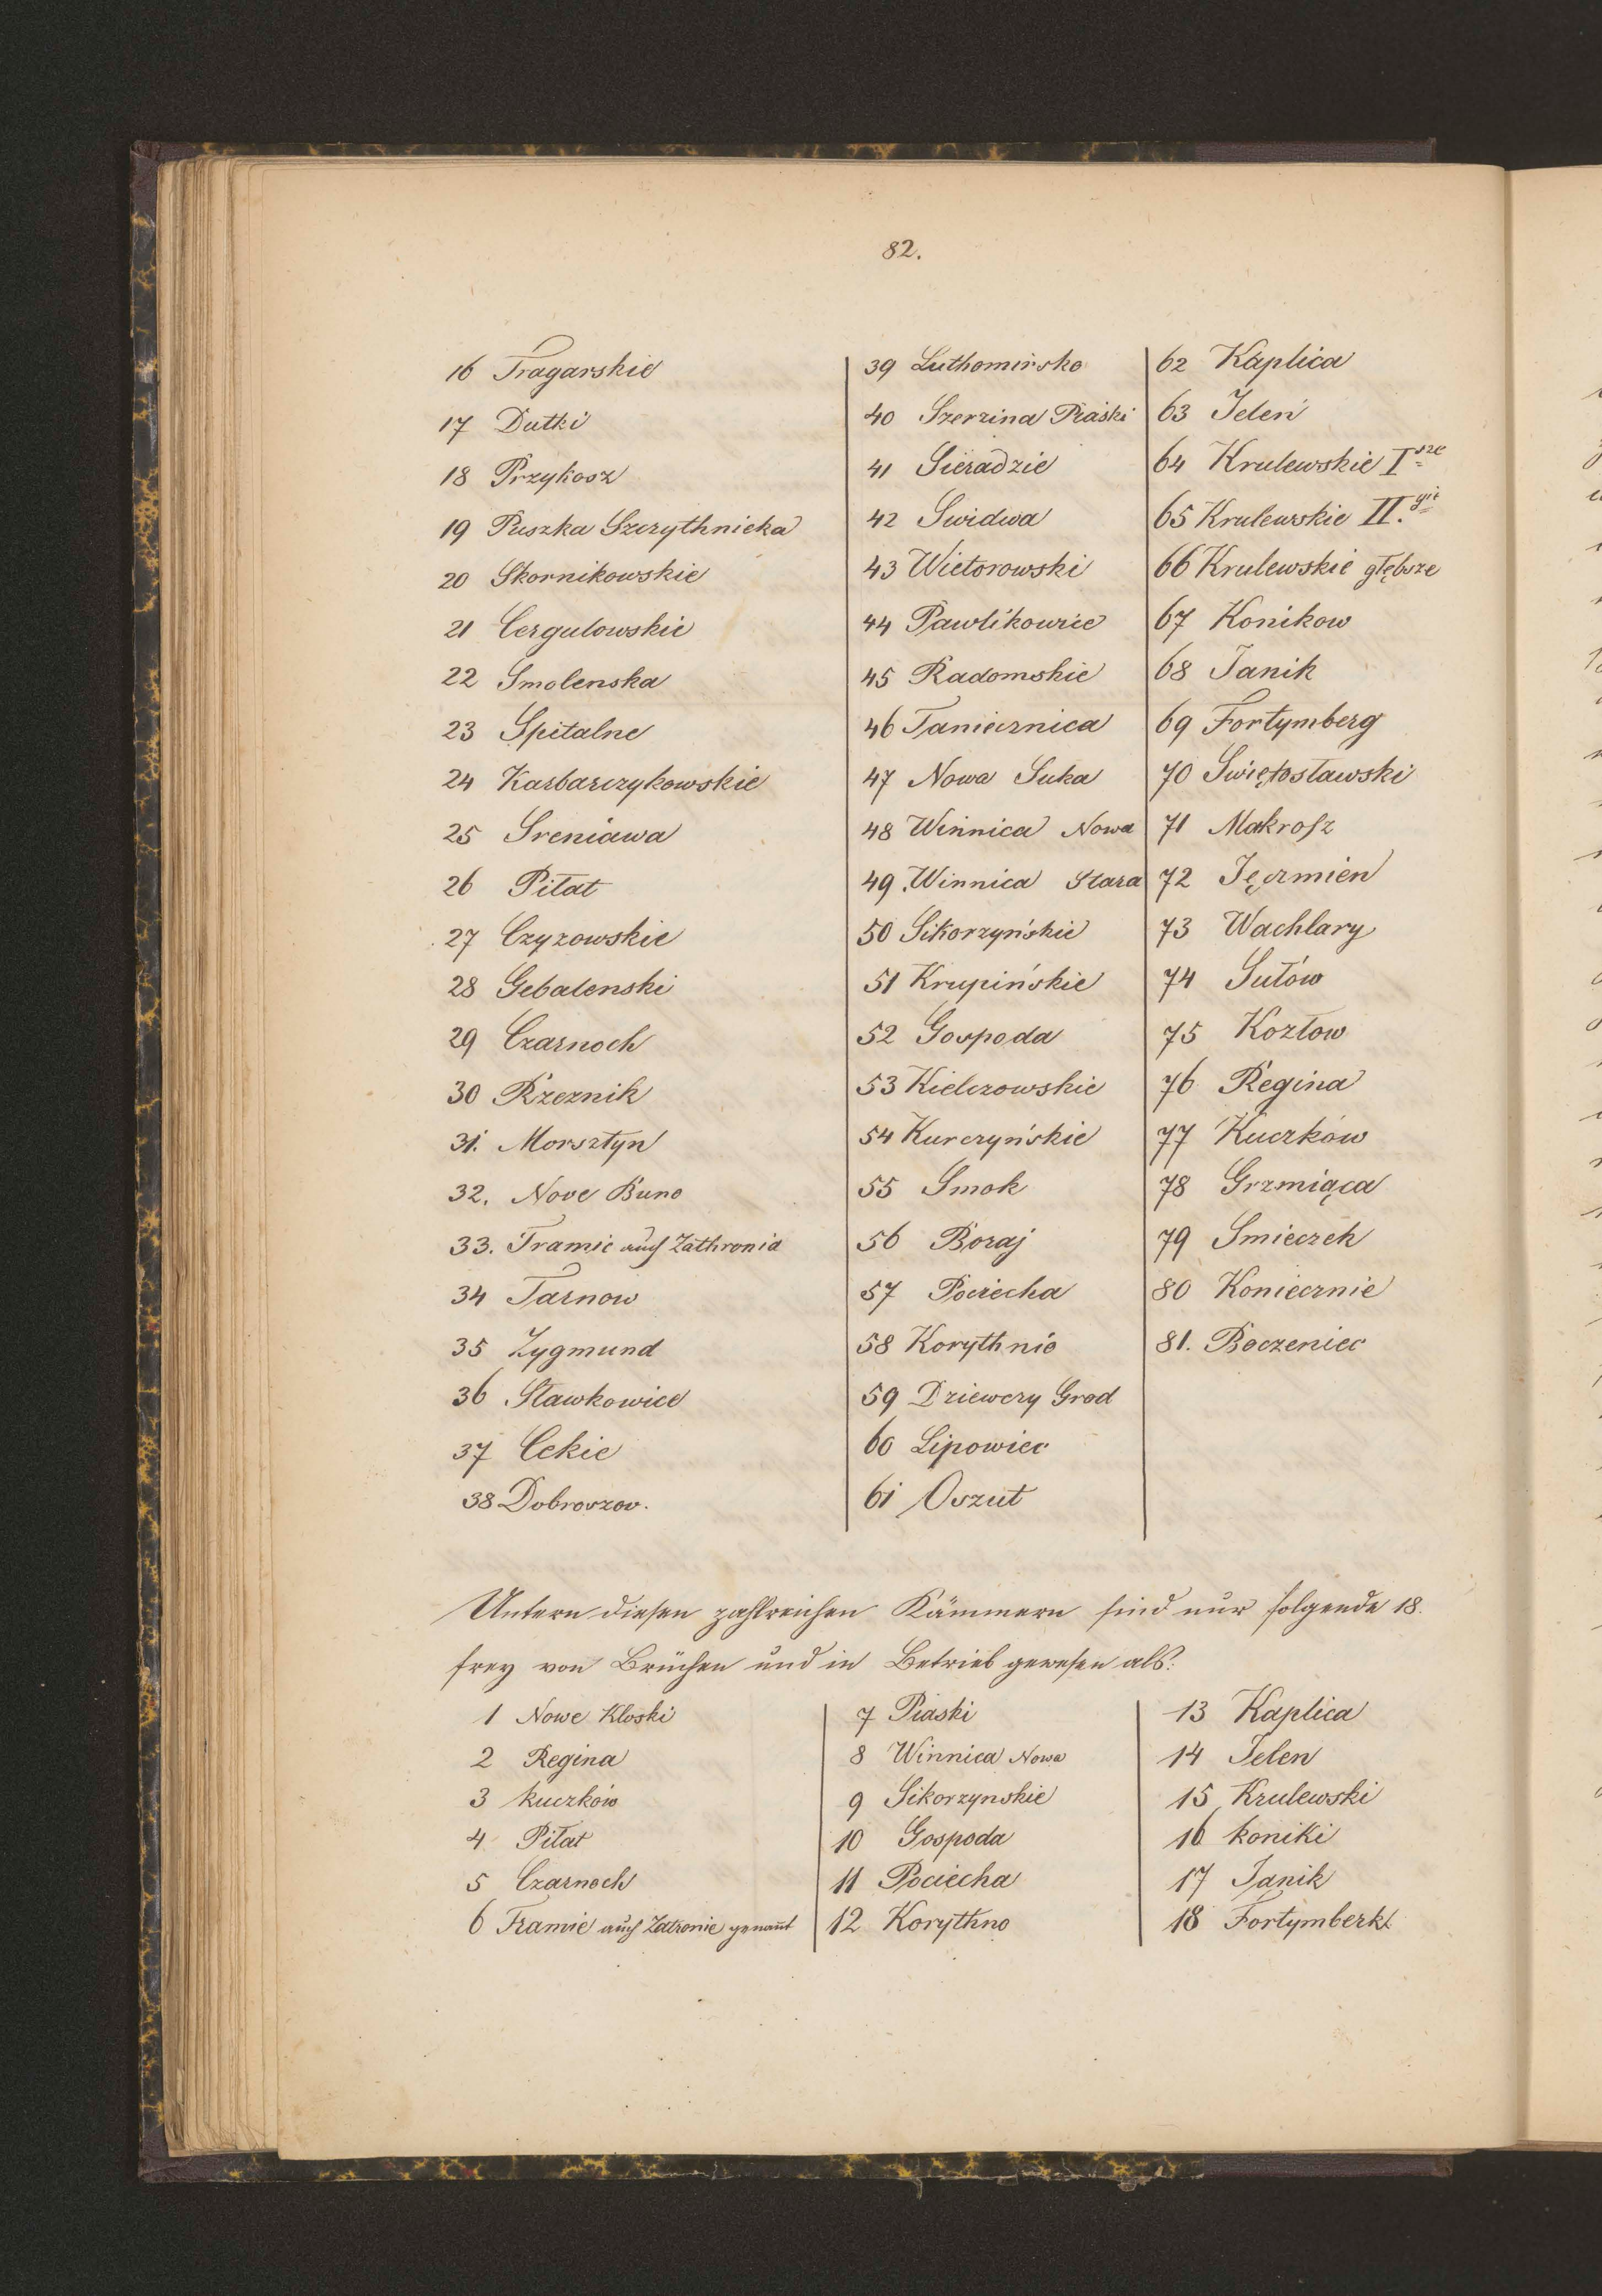 82.
16 Tragarskie
17 Dutki
18 Przykosz
19 Puszka Szczythnicka
20 Skornikowskie
21 Cergulowskie
22 Smolenska
23 Spitalne
24 Karbarczykowskie
25 Sreniawa
26 Piłat
27 Czyzowskie
28 Gebalenski
29 Czarnoch
30 Rzeznik
31. Morsztyn
32. Nove Buno
33. Tramie auch Zathronia
34 Tarnow
35 Zygmund
36 Sławkowice
37 Cekie
38 Dobroszov.
39 Luthomirsko
40 Szerzina Piaski
41 Sieradzie
42 Swidwa
43 Wietorowski
44 Pawlikowice
45 Radomskie
46 Taniecznica
47 Nowa Suka
48 Winnica Nowa
49 Winnica Stara
50 Sikorzyńskie
51 Krupińskie
52 Gospoda
53 Kielczowskie
54 Kurczyńskie
55 Smok
56 Boraj
57 Pociecha
58 Korythnio
59 Dziewczy Grod
60 Lipowiec
61 Oszut
62 Kaplica
63 Jeleń
64 Krulewskie I sze
65 Krulewskie II. gie
66 Krulewskie głębsze
67 Konikow
68 Janik
69 Fortymberg
70 Swiętosławski
71 Makrosz
72 Jęczmien
73 Wachlary
74 Sułów
75 Kozłow
76 Regina
77 Kuczków
78 Grzmiąca
79 Smieczek
80 Koniecznie
81. Boczeniec
Untern diesen zahlreichen Kämmern sind nur folgende 18.
frey von Brüchen und in Betrieb gewesen als:
1 Nowe Kloski
2 Regina
3 Kuczków
4 Piłat
5 Czarnoch
6 Tramie auch Zatronie genañt
7 Piaski
8 Winnica Nowa
9 Sikorzynskie
10 Gospoda
11 Pociecha
12 Korythno
13 Kaplica
14 Jelen
15 Krulewski
16 koniki
17 Janik
18 Fortymberk